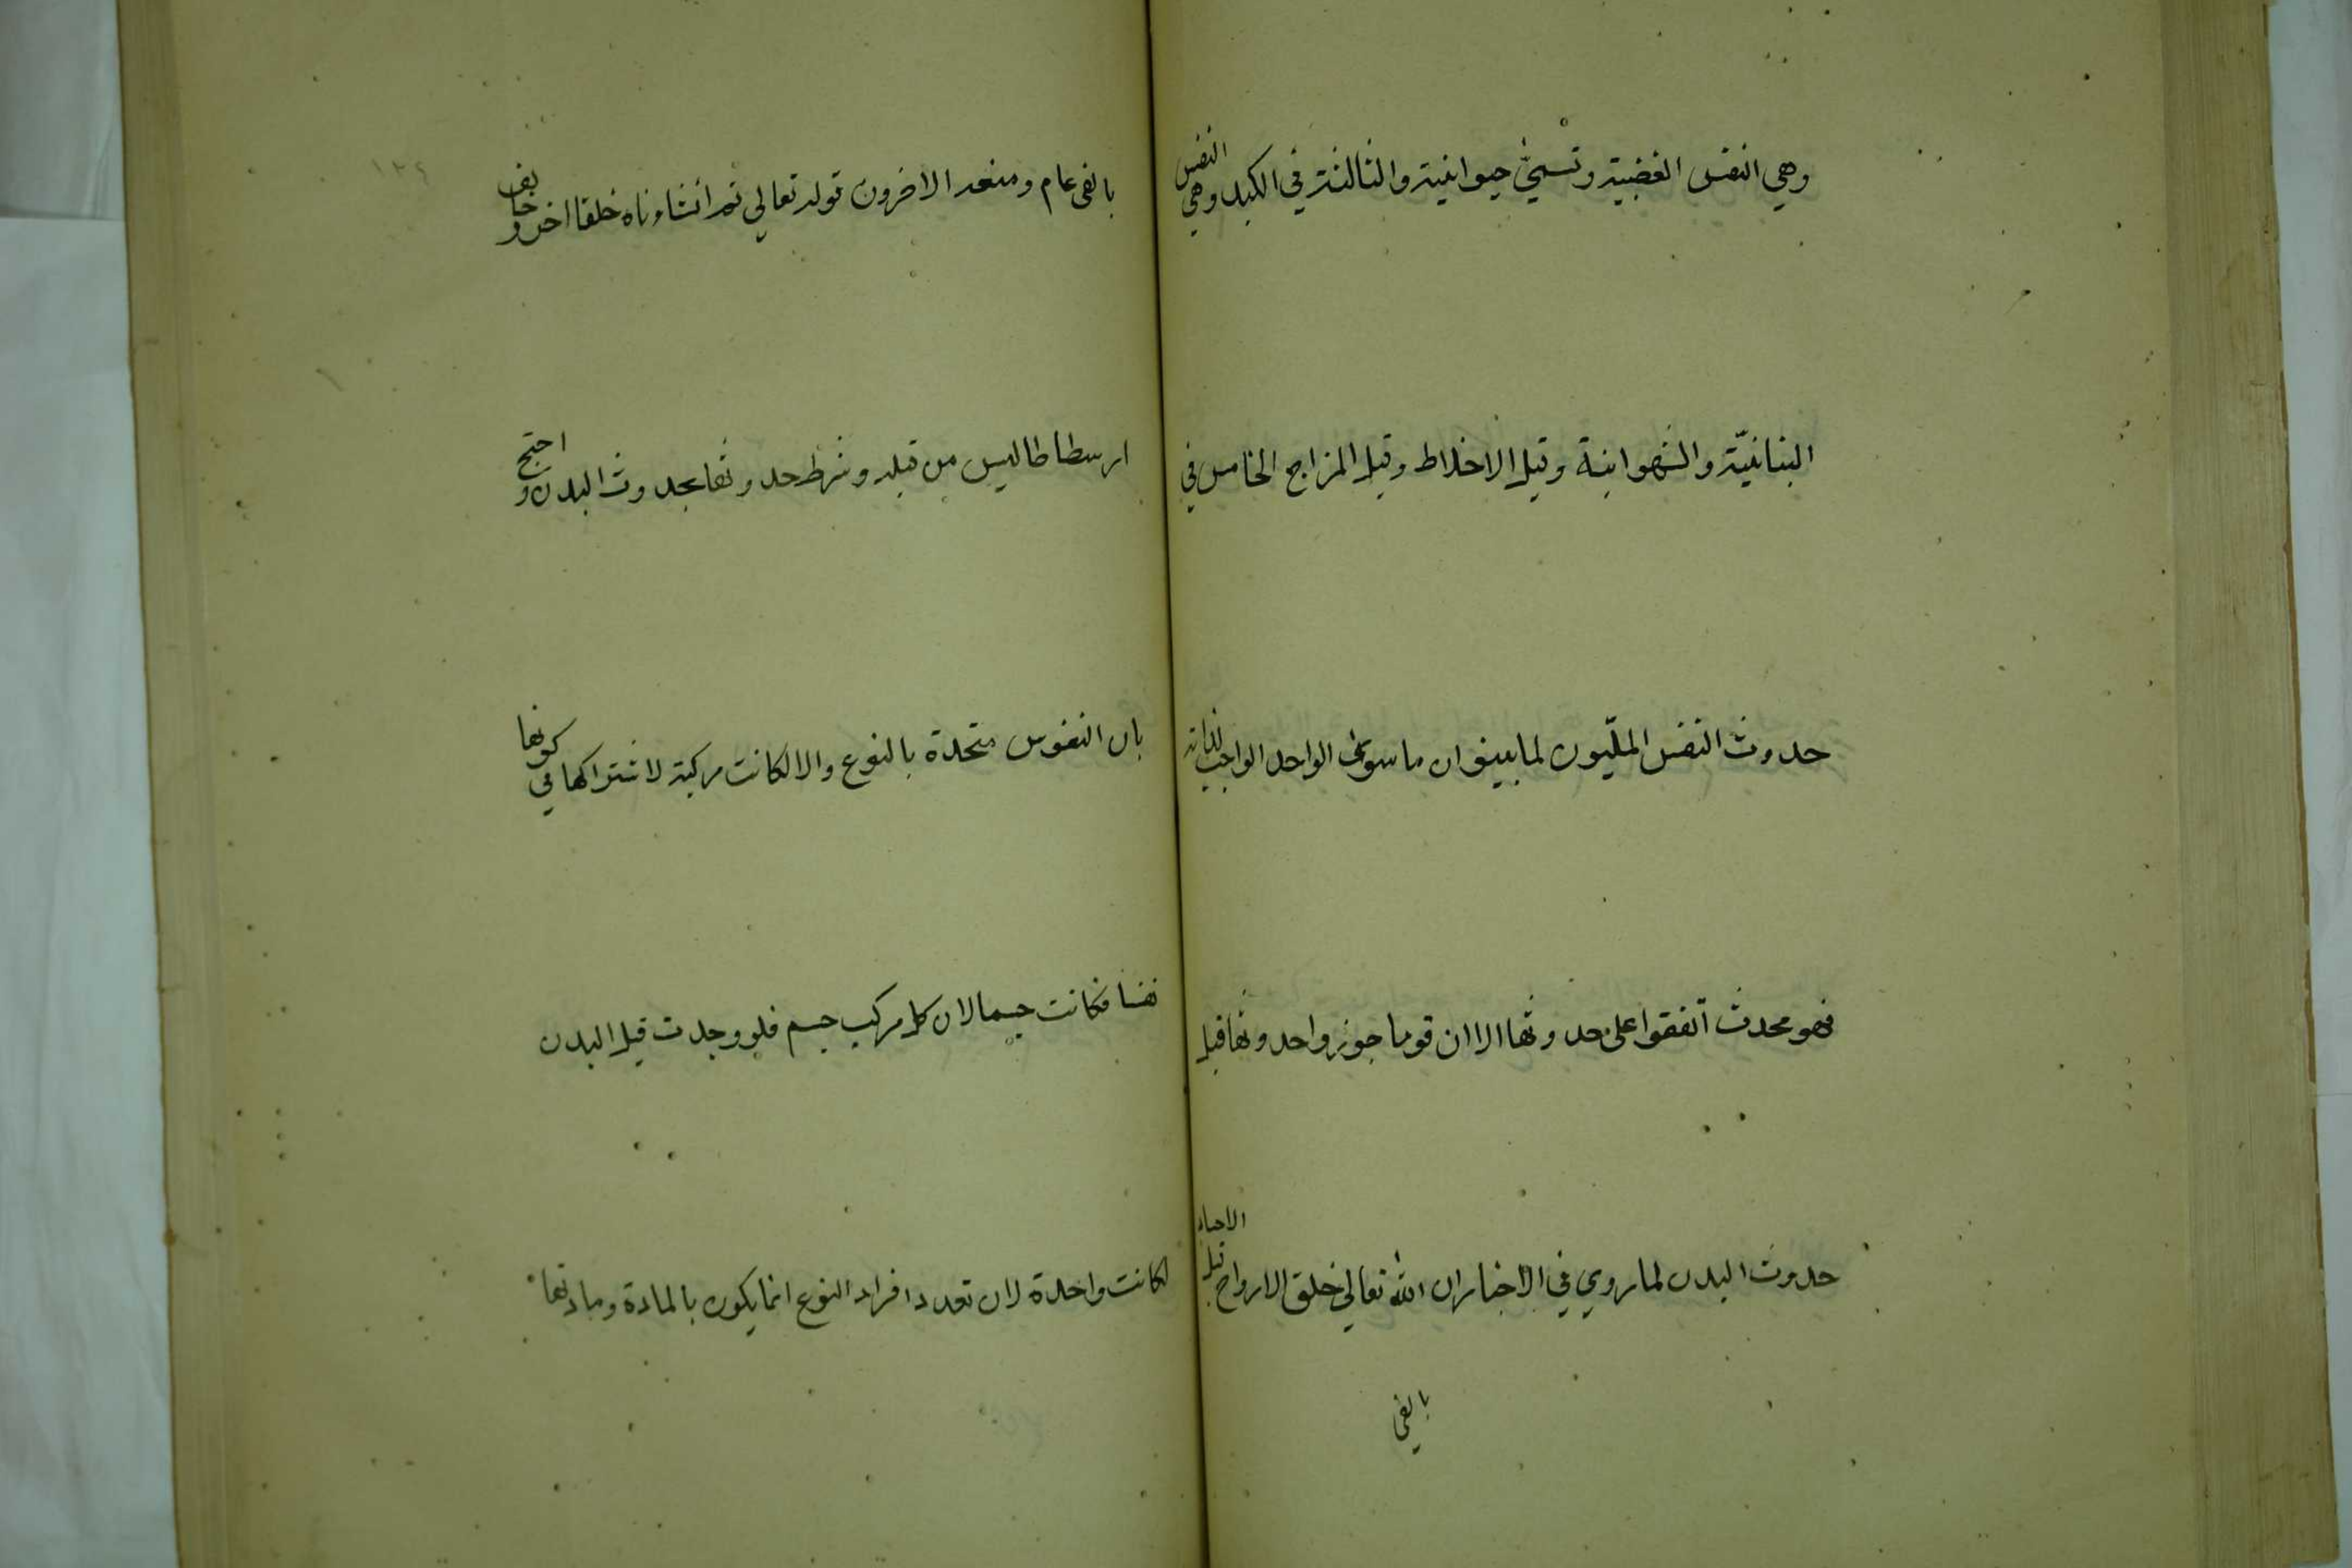 وهي النفس الغضبية وتسمى حيوانية والثالثة في الكبد وهي النفس
البناتيّة والشهوانية وقيل الاخلاط وقيل المزاج الخامس في
حدوث النفس المليّون لما بينوا ان ما سوى الواحد الواجب لذاته
فهو محدث اتفقوا على حدوثها الا ان قوما جوزوا حدوثها قبل
حدوث البدن لما روي في الاخبار ان الله تعالى خلق الارواح قبل الاجساد
بالفي
بالفي عام ومنعه الاخرون قوله تعالى ثم انشاءناه خلقا اخر وخالف
ارسطاطاليس من قبله وشرط حدوثها بحدوث البدن واحتج
بان النفوس متحدة بالنوع والا لكانت مركبة لاشتراكها في كونها
نفسا فكانت جسما لان كل مركب جسم فلو وجدت قبل البدن
لكانت واحدة لان تعدد افراد النوع انما يكون بالمادة ومادتها